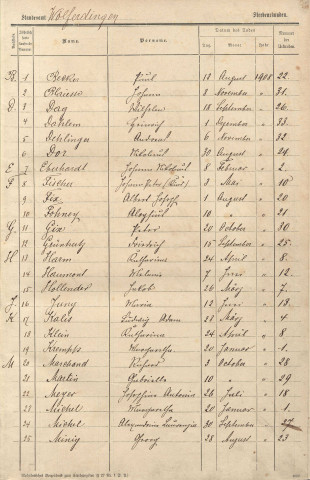 Standesamt Wölferdingen Sterbeurkunden.
Name. Vorname. Datum des Todes Nummer der Urkunden.
Tag Monat Jahr
B. 1 Becker Paul 12 August 1908 22.
2 Johann 3 November " 31.
D. 3 Dag Wilhelm 18 September " 26.
4 Dahlem Heinrich 1 Dezember " 33.
5 Dehlinger Andreas 6 November " 32
6 Dor Nikolaus 30 August " 24.
E 7 Eberhardt Johann Nikolaus 8 Februar " 2.
F 8 Fischer Johann Peter 3 Mai " 10
9 Fix Albert Joseph 1 August " 20
10 Fohrey Aloysius 10 " " 21
G. 11 Gix Peter 20 October " 30
12 Friedrich 15 September " 25.
H 13 Harm Katharina 24 April " 8.
14 Haumond Melanie 7 Juni " 12
15 Hollender Jakob 26 März " 7.
J 16 Jung Maria 12 Juni " 13.
K 17 Kalis Ludwig Adam 23 März " 4
18 Klein Katharina 24 April " 8
19 Krempff Margaretha 20 Januar " 1.
M 20 Marchand Richard 3 October " 28
21 Martin Gabrielle 10 " " 29
22 Meyer Josephine Antonia 28 Juli " 18
23 Michel Margaretha 20 Januar " 1.
24 Michel Alexandrine 30 September " 27
25 Minig Georg 28 August " 23